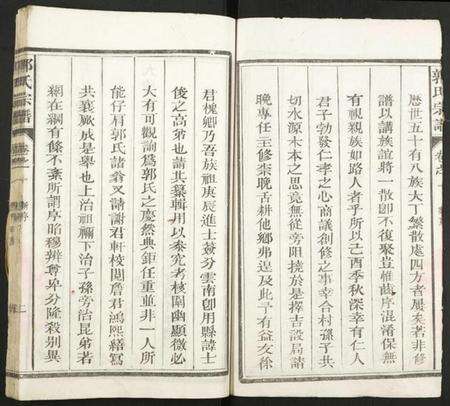 郭氏宗譜
歷世五十有八族大丁繁散處四方者屢矣若非修
譜以講族誼將一散卽不復聚豈惟齒序混淆保無
有視親族如路人者乎所以己酉季秋深幸有仁人
君子勃發仁孝之心商議創修之事幸合村孫子共
切水源木本之思竟無從旁阻撓於是擇吉設局請
晚專任主修柰晚舌耕他鄉弗遑及此予有益友係
君槐卿乃吾族庚辰進士簽分雲南卽用縣諱士
俊之高弟也請其纂輯用以泰究考核闡幽顯微必
大有可觀諭爲郭氏之慶然典鉅任重並非一人所
能仔肩郭氏諸翁又諸謝君軒棱閔詹君鴻熙繕寫
共襄厥成是舉也上治祖禰下治子孫旁治昆弟若
網在綱有條不紊所謂序昭穆辨尊卑分隆殺别異
郭氏宗譜